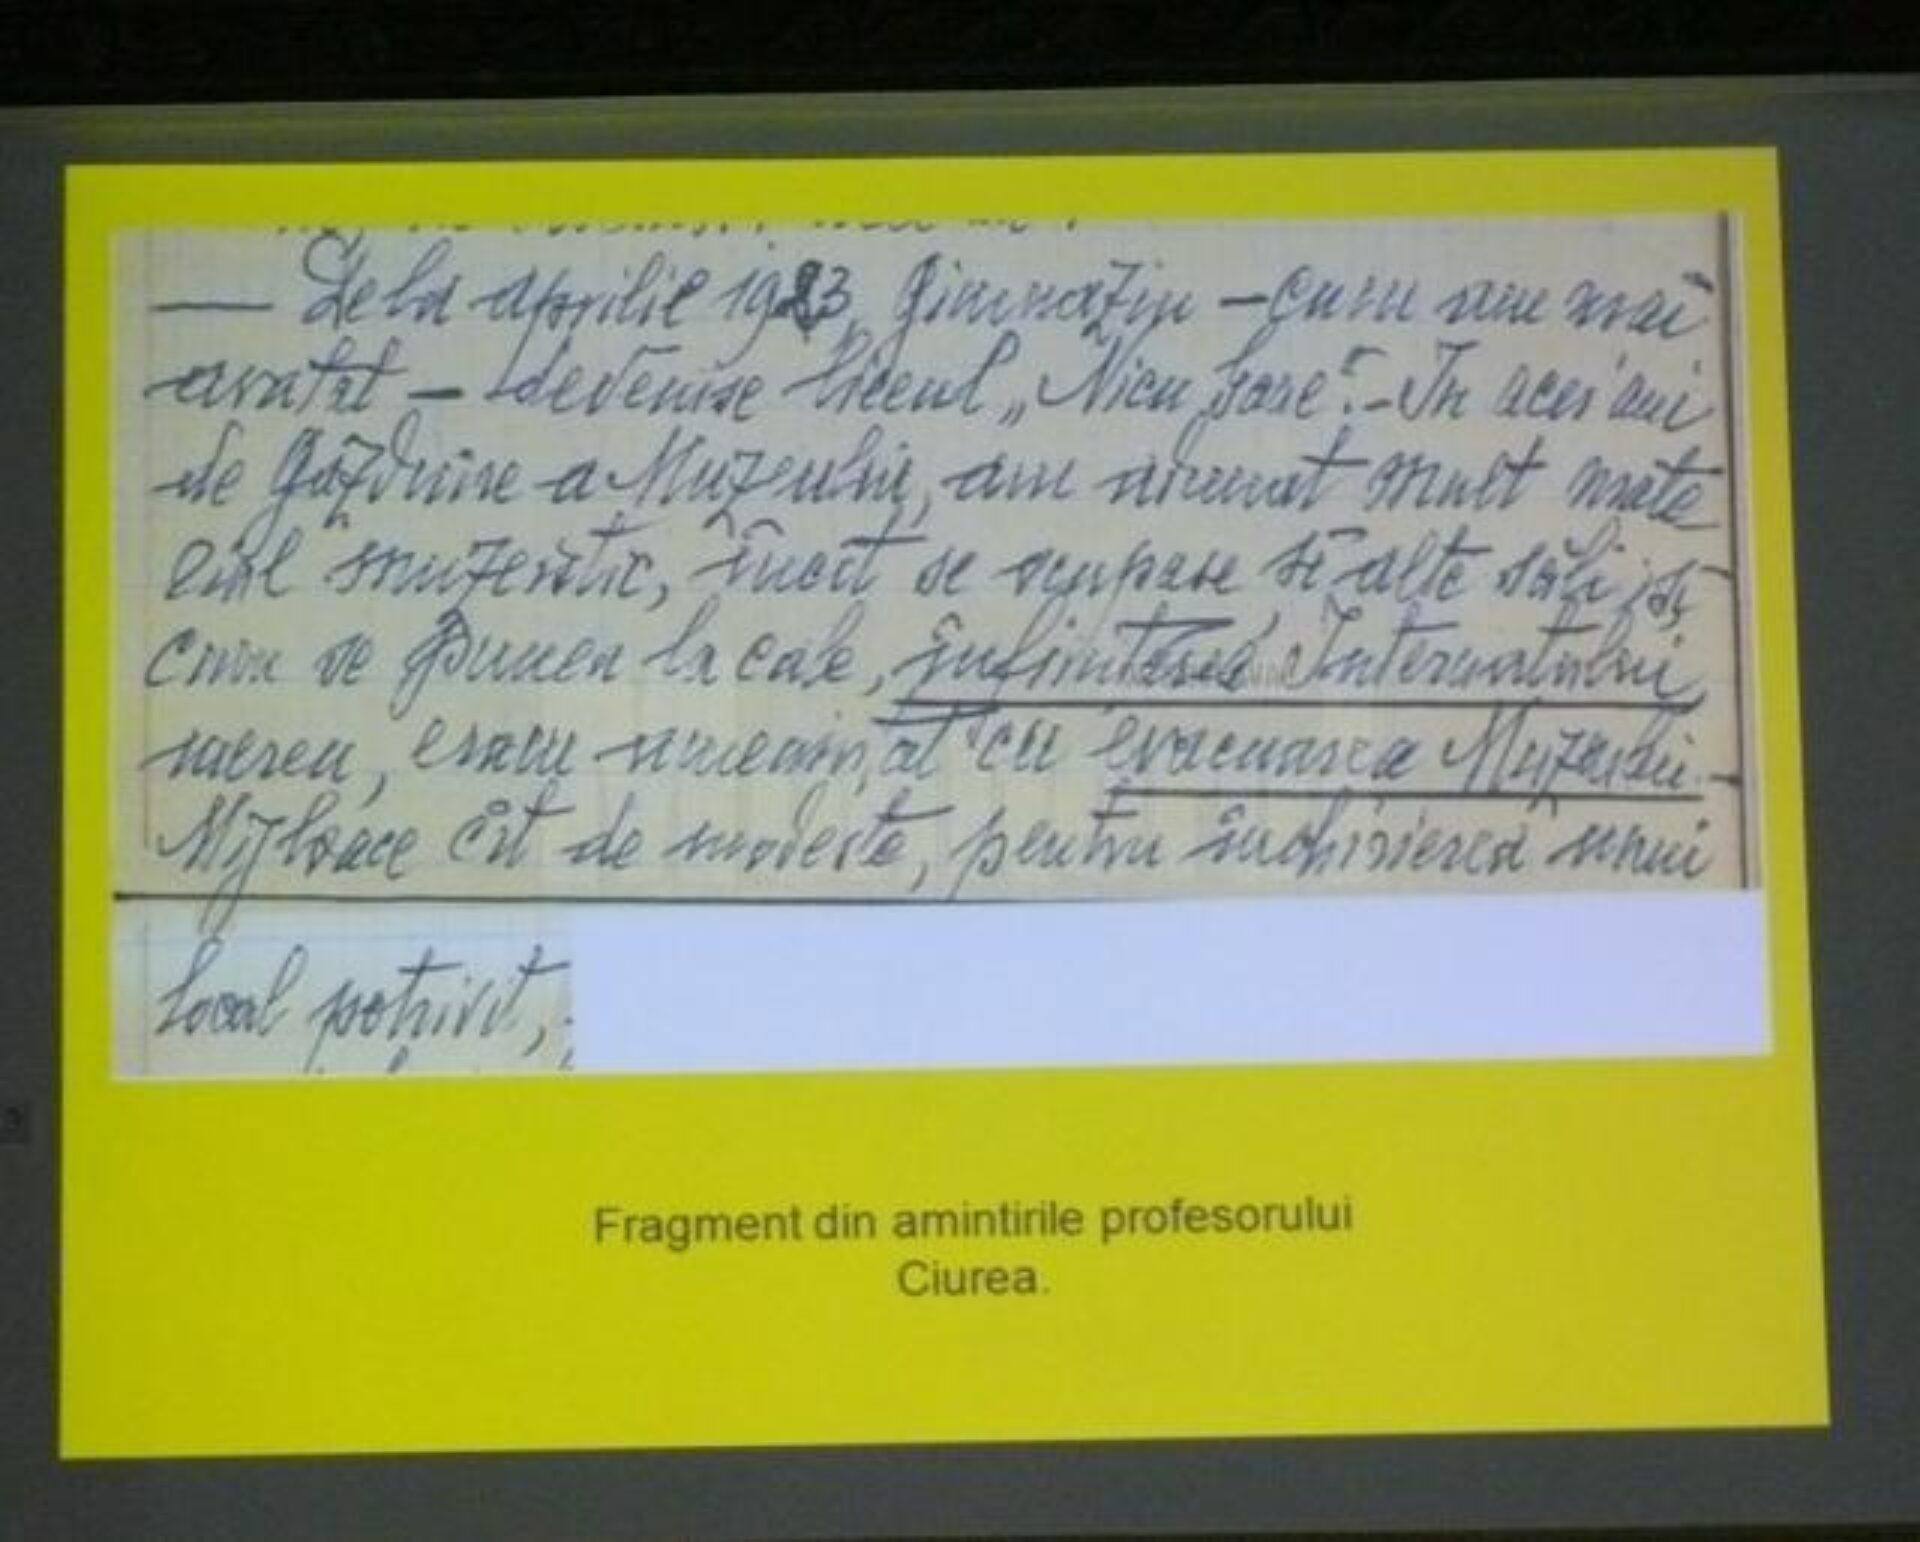 — De la aprilie 1923, Gimnaziu – cum am mai
arătat – devenise liceul „Nicu Gane". – In acei ani
de găzduire a Muzeului, am adunat mult mate
rial muzeistic, încît se ocupase și alte săli și
cum se punea la cale, înființarea Internatului,
mereu, eram amenințat cu evacuarea Muzeului. –
Mijloace cît de modeste, pentru închirierea unui
local potrivit,
Fragment din amintirile profesorului
Ciurea.